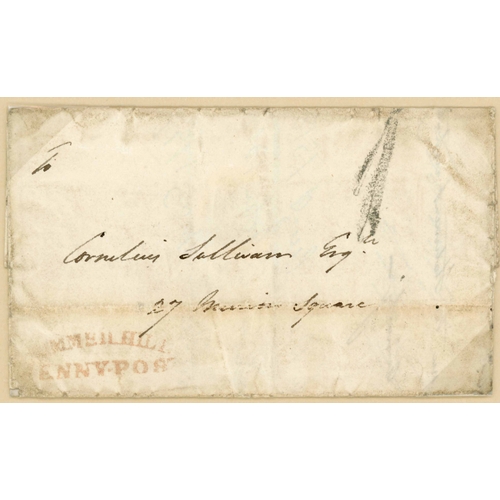 To
Cornelius Sullivan Esqre
27 Merrion Square
MMER HILL
ENNY-POST